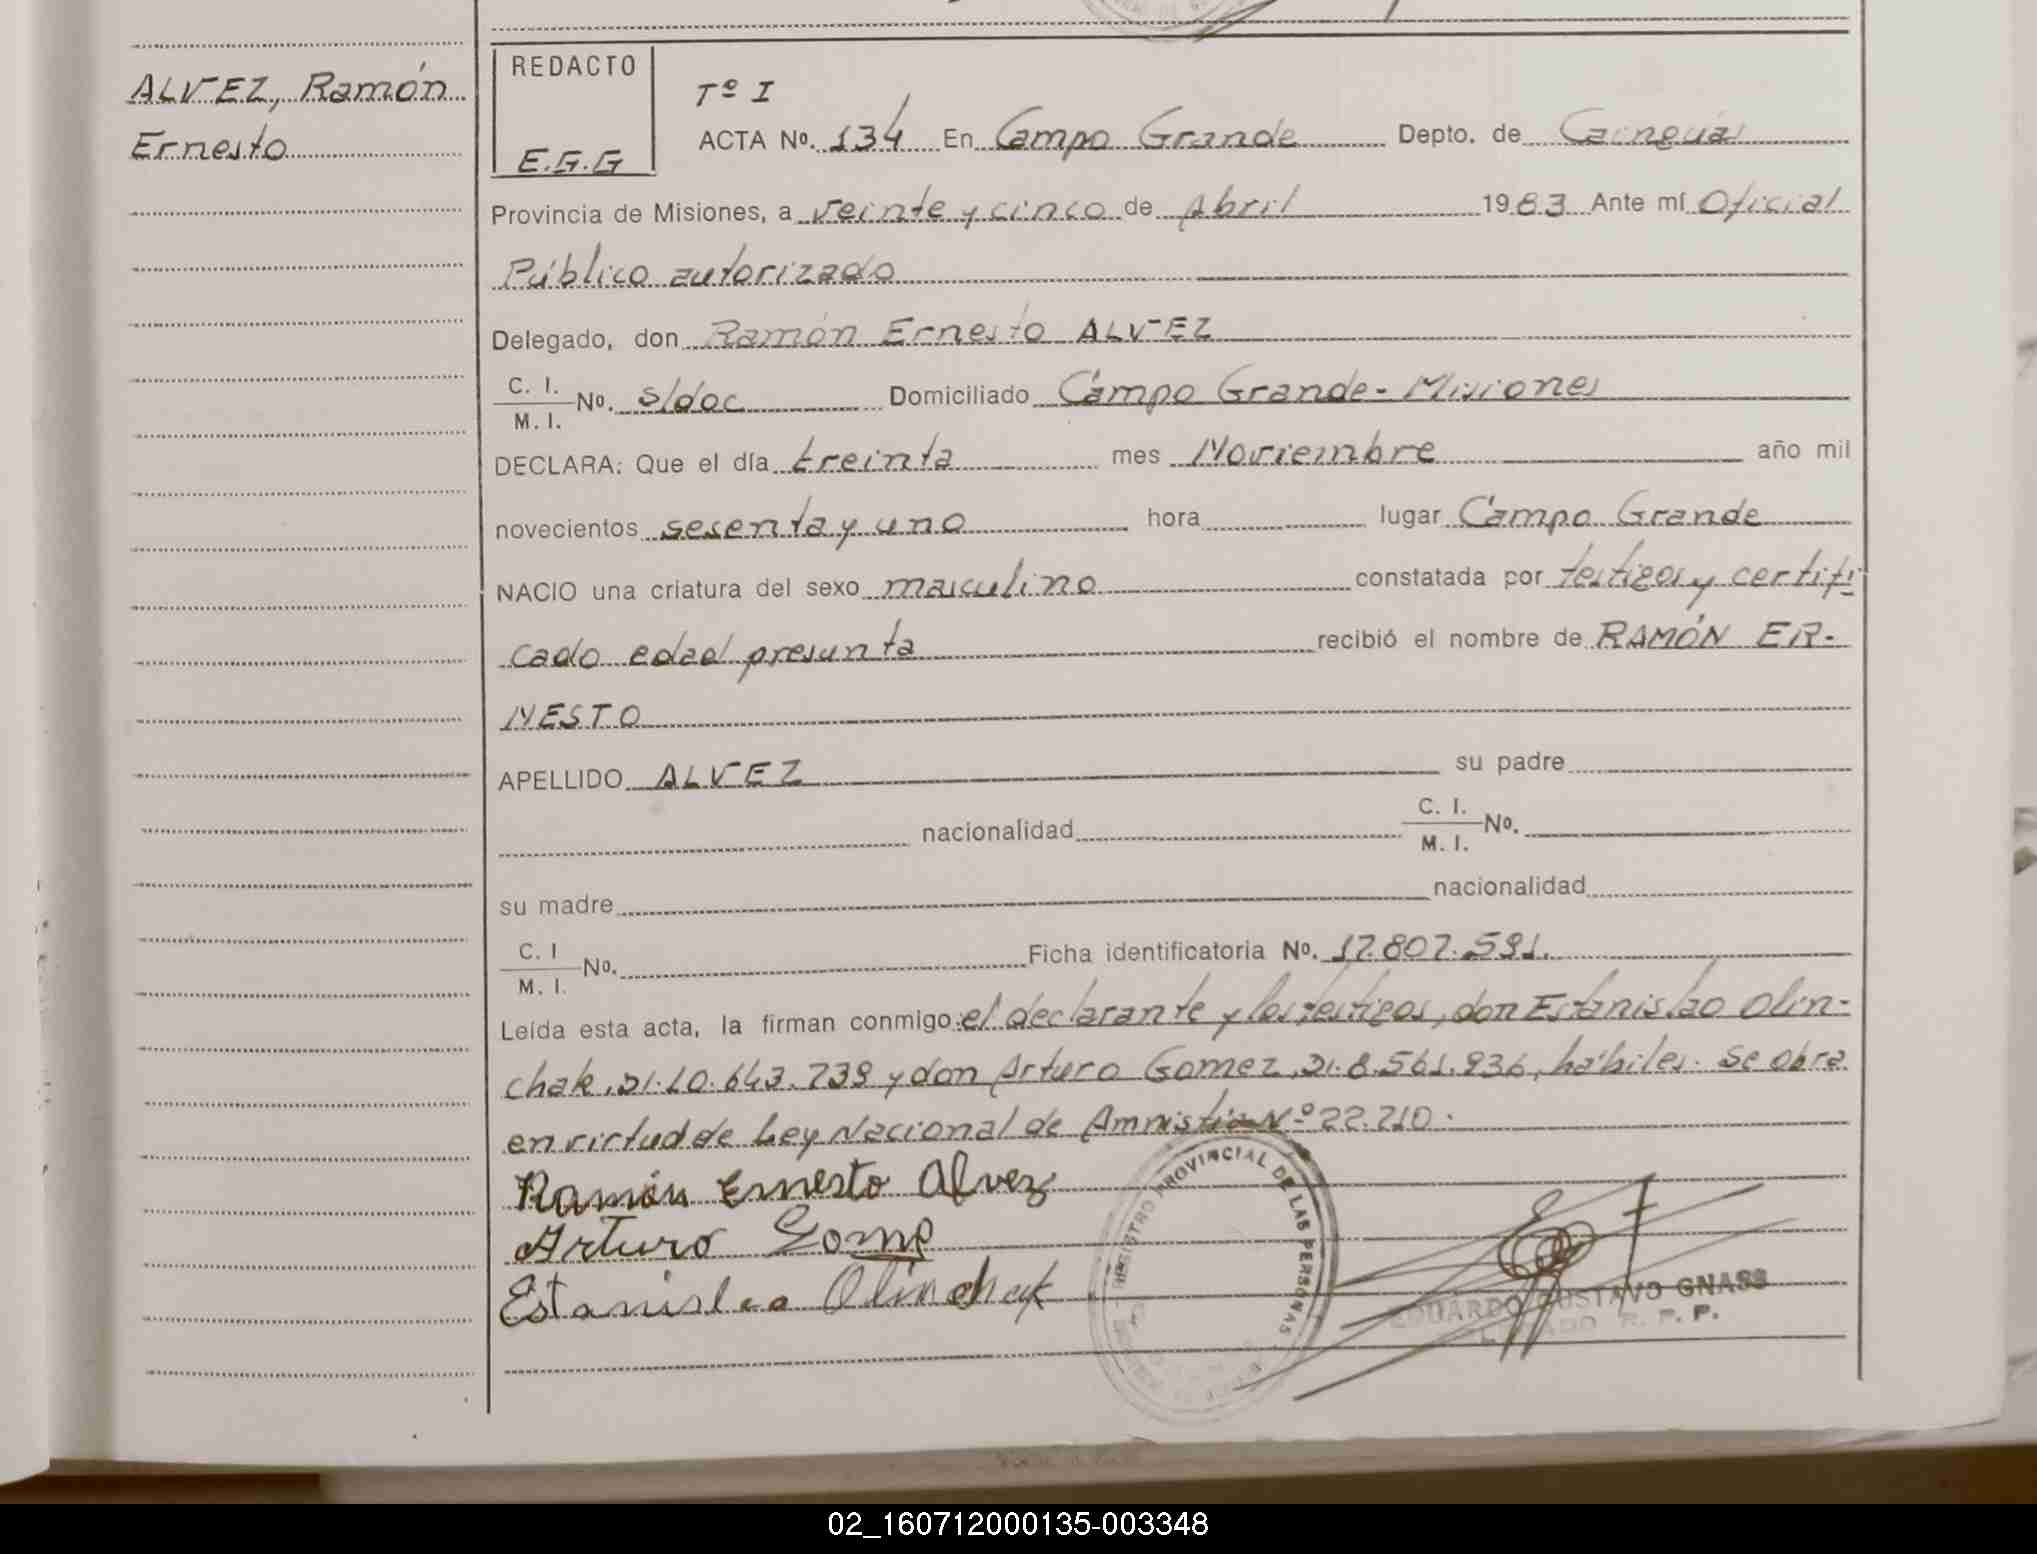 ALVEZ, Ramón
Ernesto
REDACTO
E.G.G
Tº I
ACTA Nº. 134 En Campo Grande Depto. de Cainguás
Provincia de Misiones, a veinte y cinco de Abril 1983 Ante mí Oficial
Público autorizado
Delegado, don Ramón Ernesto ALVEZ
C. I.
M. I. Nº. s/doc Domiciliado Campo Grande - Misiones
DECLARA: Que el día treinta mes Noviembre año mil
novecientos sesenta y uno hora lugar Campo Grande
NACIO una criatura del sexo masculino constatada por testigos y certifi
cado edad presunta recibió el nombre de RAMÓN ER-
NESTO
APELLIDO ALVEZ su padre
nacionalidad C. I.
M. I. Nº.
su madre nacionalidad
C. I
M. I. Nº. Ficha identificatoria Nº. 17.807.591.
Leída esta acta, la firman conmigo: el declarante y los testigos, don Estanislao Olin-
chak, DI. 10.643.739 y don Arturo Gomez, DI. 8.561.936, hábiles. Se obra
en virtud de Ley Nacional de Amnistia Nº 22.210.
Ramón Ernesto Alvez
Arturo Gome
Estanislao Olinchak
REGISTRO PROVINCIAL DE LAS PERSONAS
EDUARDO GUSTAVO GNASS
R. P. P.
02_160712000135-003348